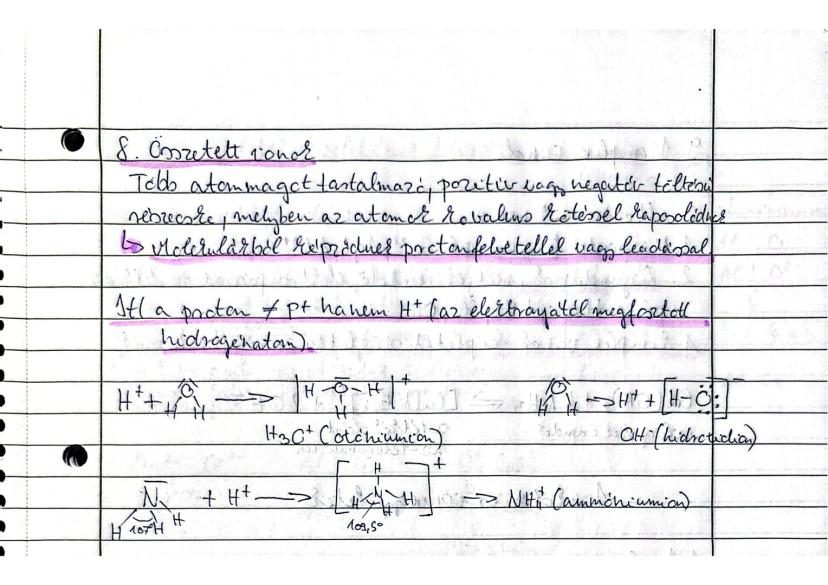 8. Összetett ionok
Több atommagot tartalmazó, pozitív vagy negatív töltésű
részecske, melyben az atomok kovalens kötéssel kapcsolódnak
↳ Molekulákból képződnek protonfelvétellel vagy leadással
Itt a proton ≠ p+ hanem H+ (az elektronjától megfosztott
hidrogénatom).
H+ + O H H → [H-O-H H]+ O H H → H+ + [H-O:]-
H3O+ (oxóniumion) OH- (hidroxidion)
N H H H 107° + H+ → [H N H H H]+ 109,5° → NH4+ (ammóniumion)